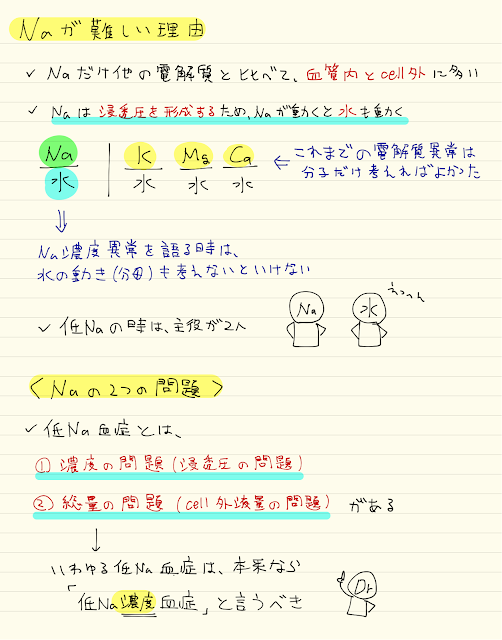 Naが難しい理由
✓ Naだけ他の電解質と比べて、血管内とcell外に多い
✓ Naは浸透圧を形成するため、Naが動くと水も動く
Na/水 | K/水 Mg/水 Ca/水 ← これまでの電解質異常は
分子だけ考えればよかった
⇓
Na濃度異常を語る時は、
水の動き(分母)も考えないといけない
✓ 低Naの時は、主役が2人
Na 水 えっへん
〈Naの2つの問題〉
✓ 低Na血症とは、
① 濃度の問題(浸透圧の問題)
② 総量の問題(cell外液量の問題) がある
↓
いわゆる低Na血症は、本来なら
「低Na濃度血症」と言うべき
Dr